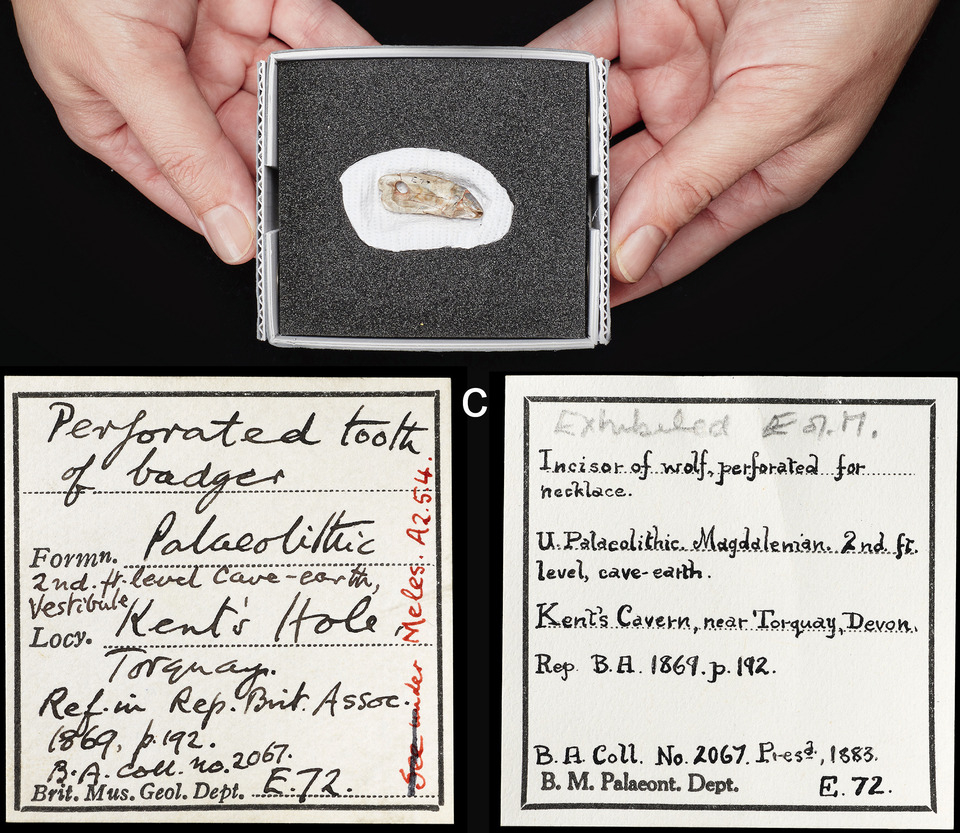 C
Perforated tooth
of badger
Formn. Palaeolithic
2nd. ft. level Cave-earth,
Vestibule
Locy. Kent's Hole,
Torquay.
Ref. in Rep. Brit. Assoc.
1869, p.192.
B.A. coll. no. 2067.
Brit. Mus. Geol. Dept. E.72.
See under Meles. A2.54.
Exhibited E.o.M.
Incisor of wolf, perforated for
necklace.
U. Palaeolithic. Magdalenian. 2nd. ft.
level, cave-earth.
Kent's Cavern, near Torquay, Devon.
Rep. B.A. 1869. p. 192.
B.A. Coll. No. 2067. Presd, 1883.
B. M. Palaeont. Dept. E.72.